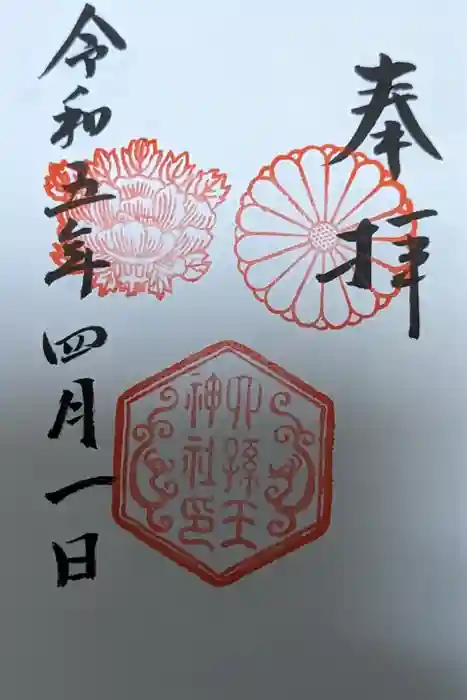 奉拝
六孫王
神社印
令和五年四月一日